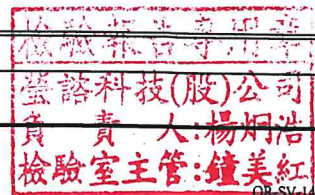 檢驗報告專用章
瑩諮科技(股)公司
負責人:楊炯浩
檢驗室主管:鐘美紅
QR-SV-14